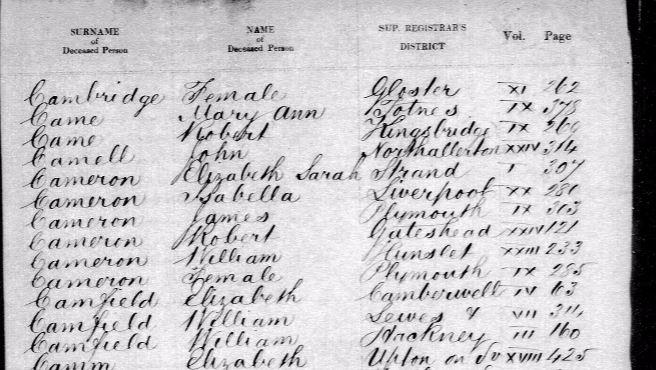 SURNAME NAME SUP. REGISTRAR'S
of of Vol. Page
Deceased Person Deceased Person DISTRICT
Cambridge Female Gloster XI 262
Came Mary Ann Totnes IX 378
Came Robert Kingsbridge IX 260
Camell John Northallerton XXIV 314
Cameron Elizabeth Sarah Strand I 307
Cameron Isabella Liverpool XX 280
Cameron James Plymouth IX 303
Cameron Robert Gateshead XXIV 121
Cameron William Hunslet XXIII 233
Cameron Female Plymouth IX 285
Camfield Elizabeth Camberwell IV 63
Camfield William Lewes VII 311
Camfield William Hackney III 160
Camm Elizabeth Upton on Sv XVIII 425